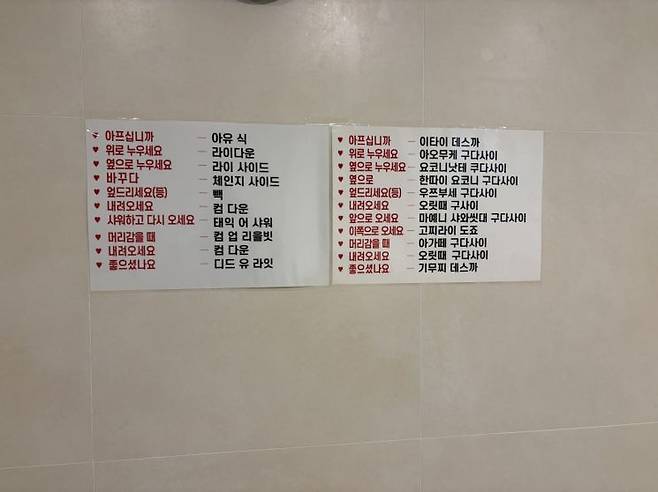 ♥ 아프십니까 — 아유 식
♥ 위로 누우세요 — 라이다운
♥ 옆으로 누우세요 — 라이 사이드
♥ 바꾸다 — 체인지 사이드
♥ 엎드리세요(등) — 빽
♥ 내려오세요 — 컴 다운
♥ 샤워하고 다시 오세요 — 태익 어 샤워
♥ 머리감을 때 — 컴 업 리을빗
♥ 내려오세요 — 컴 다운
♥ 좋으셨나요 — 디드 유 라잇
♥ 아프십니까 — 이타이 데스까
♥ 위로 누우세요 — 아오무케 구다사이
♥ 옆으로 누우세요 — 요코니낫테 쿠다사이
♥ 옆으로 — 한따이 요코니 구다사이
♥ 엎드리세요(등) — 우쯔부세 구다사이
♥ 내려오세요 — 오릿때 구사이
♥ 앞으로 오세요 — 마예니 샤와씻대 구다사이
♥ 이쪽으로 오세요 — 고찌라이 도죠
♥ 머리감을 때 — 아가떼 구다사이
♥ 내려오세요 — 오릿때 구다사이
♥ 좋으셨나요 — 기무찌 데스까